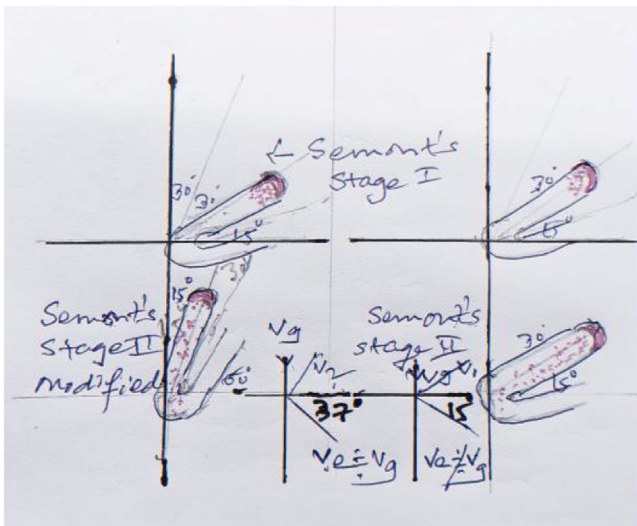 30°
30°
← Semont's
Stage I
15°
30°
15°
Semont's
Stage II
modified
15°
30°
60°
Vg
V2
37°
Ve ≑ Vg
Semont's
stage II
Vg V1
15
Ve ≑ Vg
30°
15°